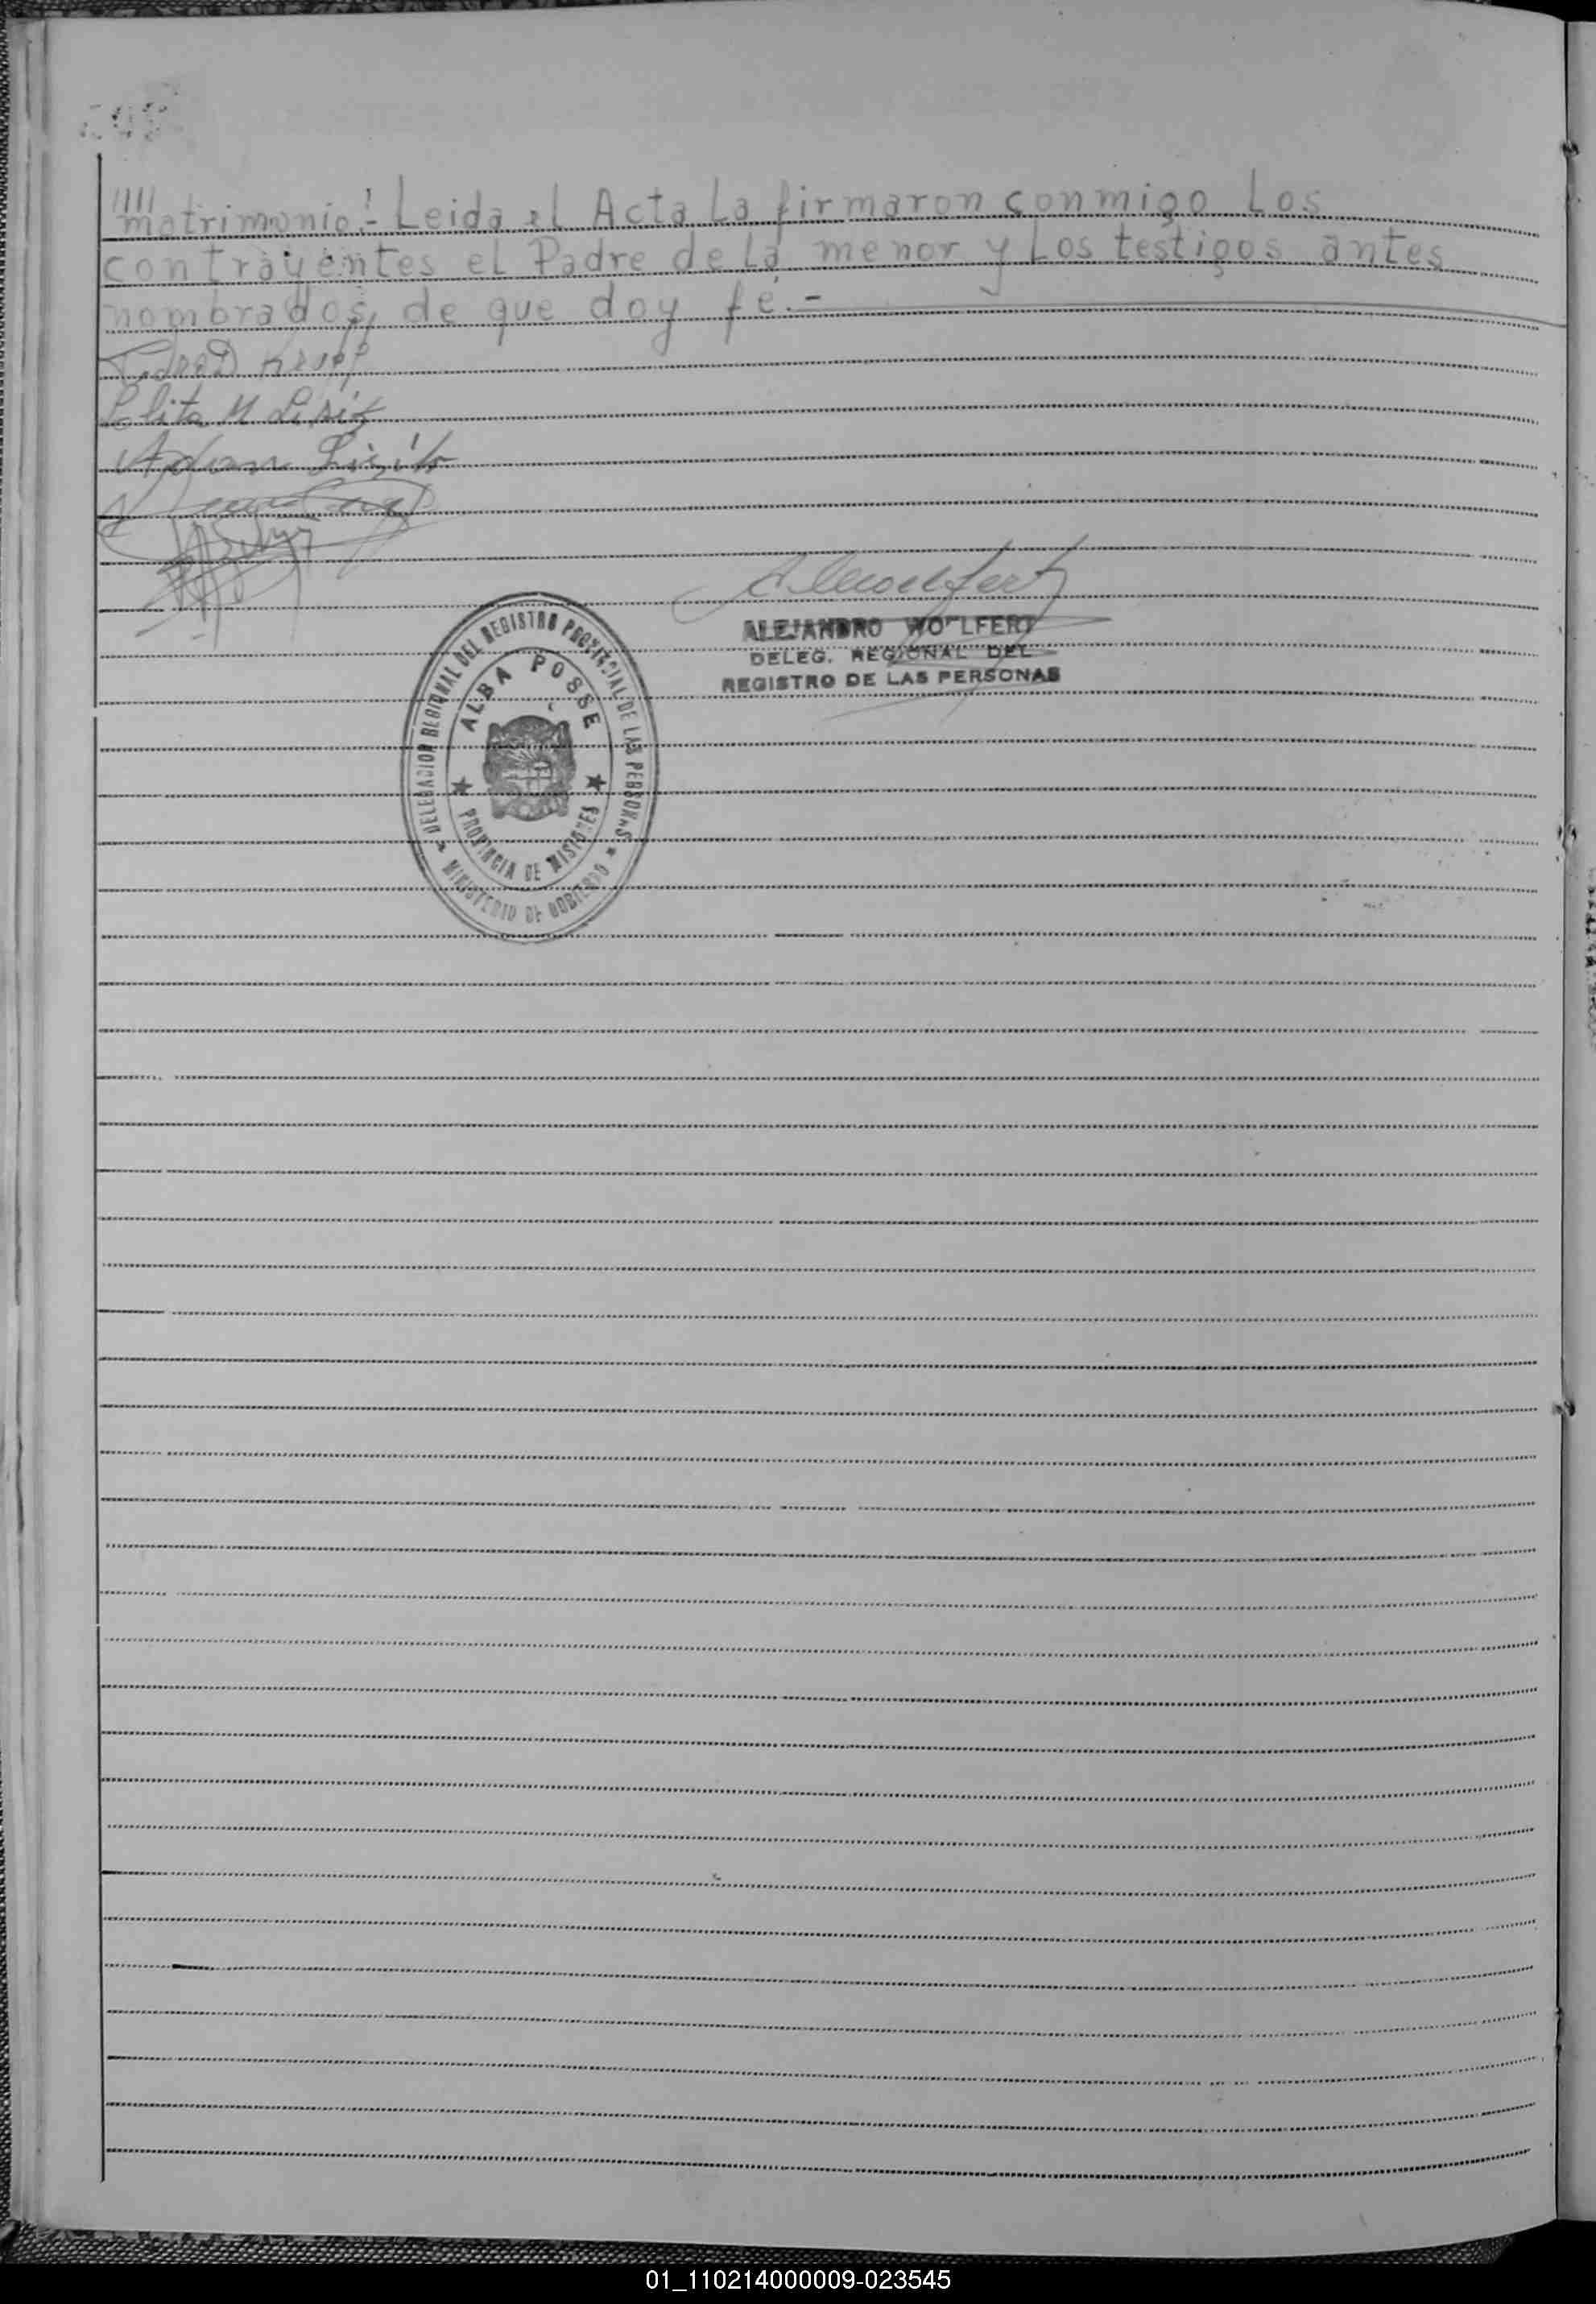 //// matrimonio!- Leida el Acta La firmaron conmigo Los
contrayentes el Padre de La menor y Los testigos antes
nombrados, de que doy fé.-
Krupp
Lolita M Lisik
Adan
ALEJANDRO WOLFERT
DELEG. REGIONAL DEL
REGISTRO DE LAS PERSONAS
DELEGACION REGIONAL DEL REGISTRO PROVINCIAL DE LAS PERSONAS
ALBA POSSE
PROVINCIA DE MISIONES
MINISTERIO DE GOBIERNO
01_110214000009-023545